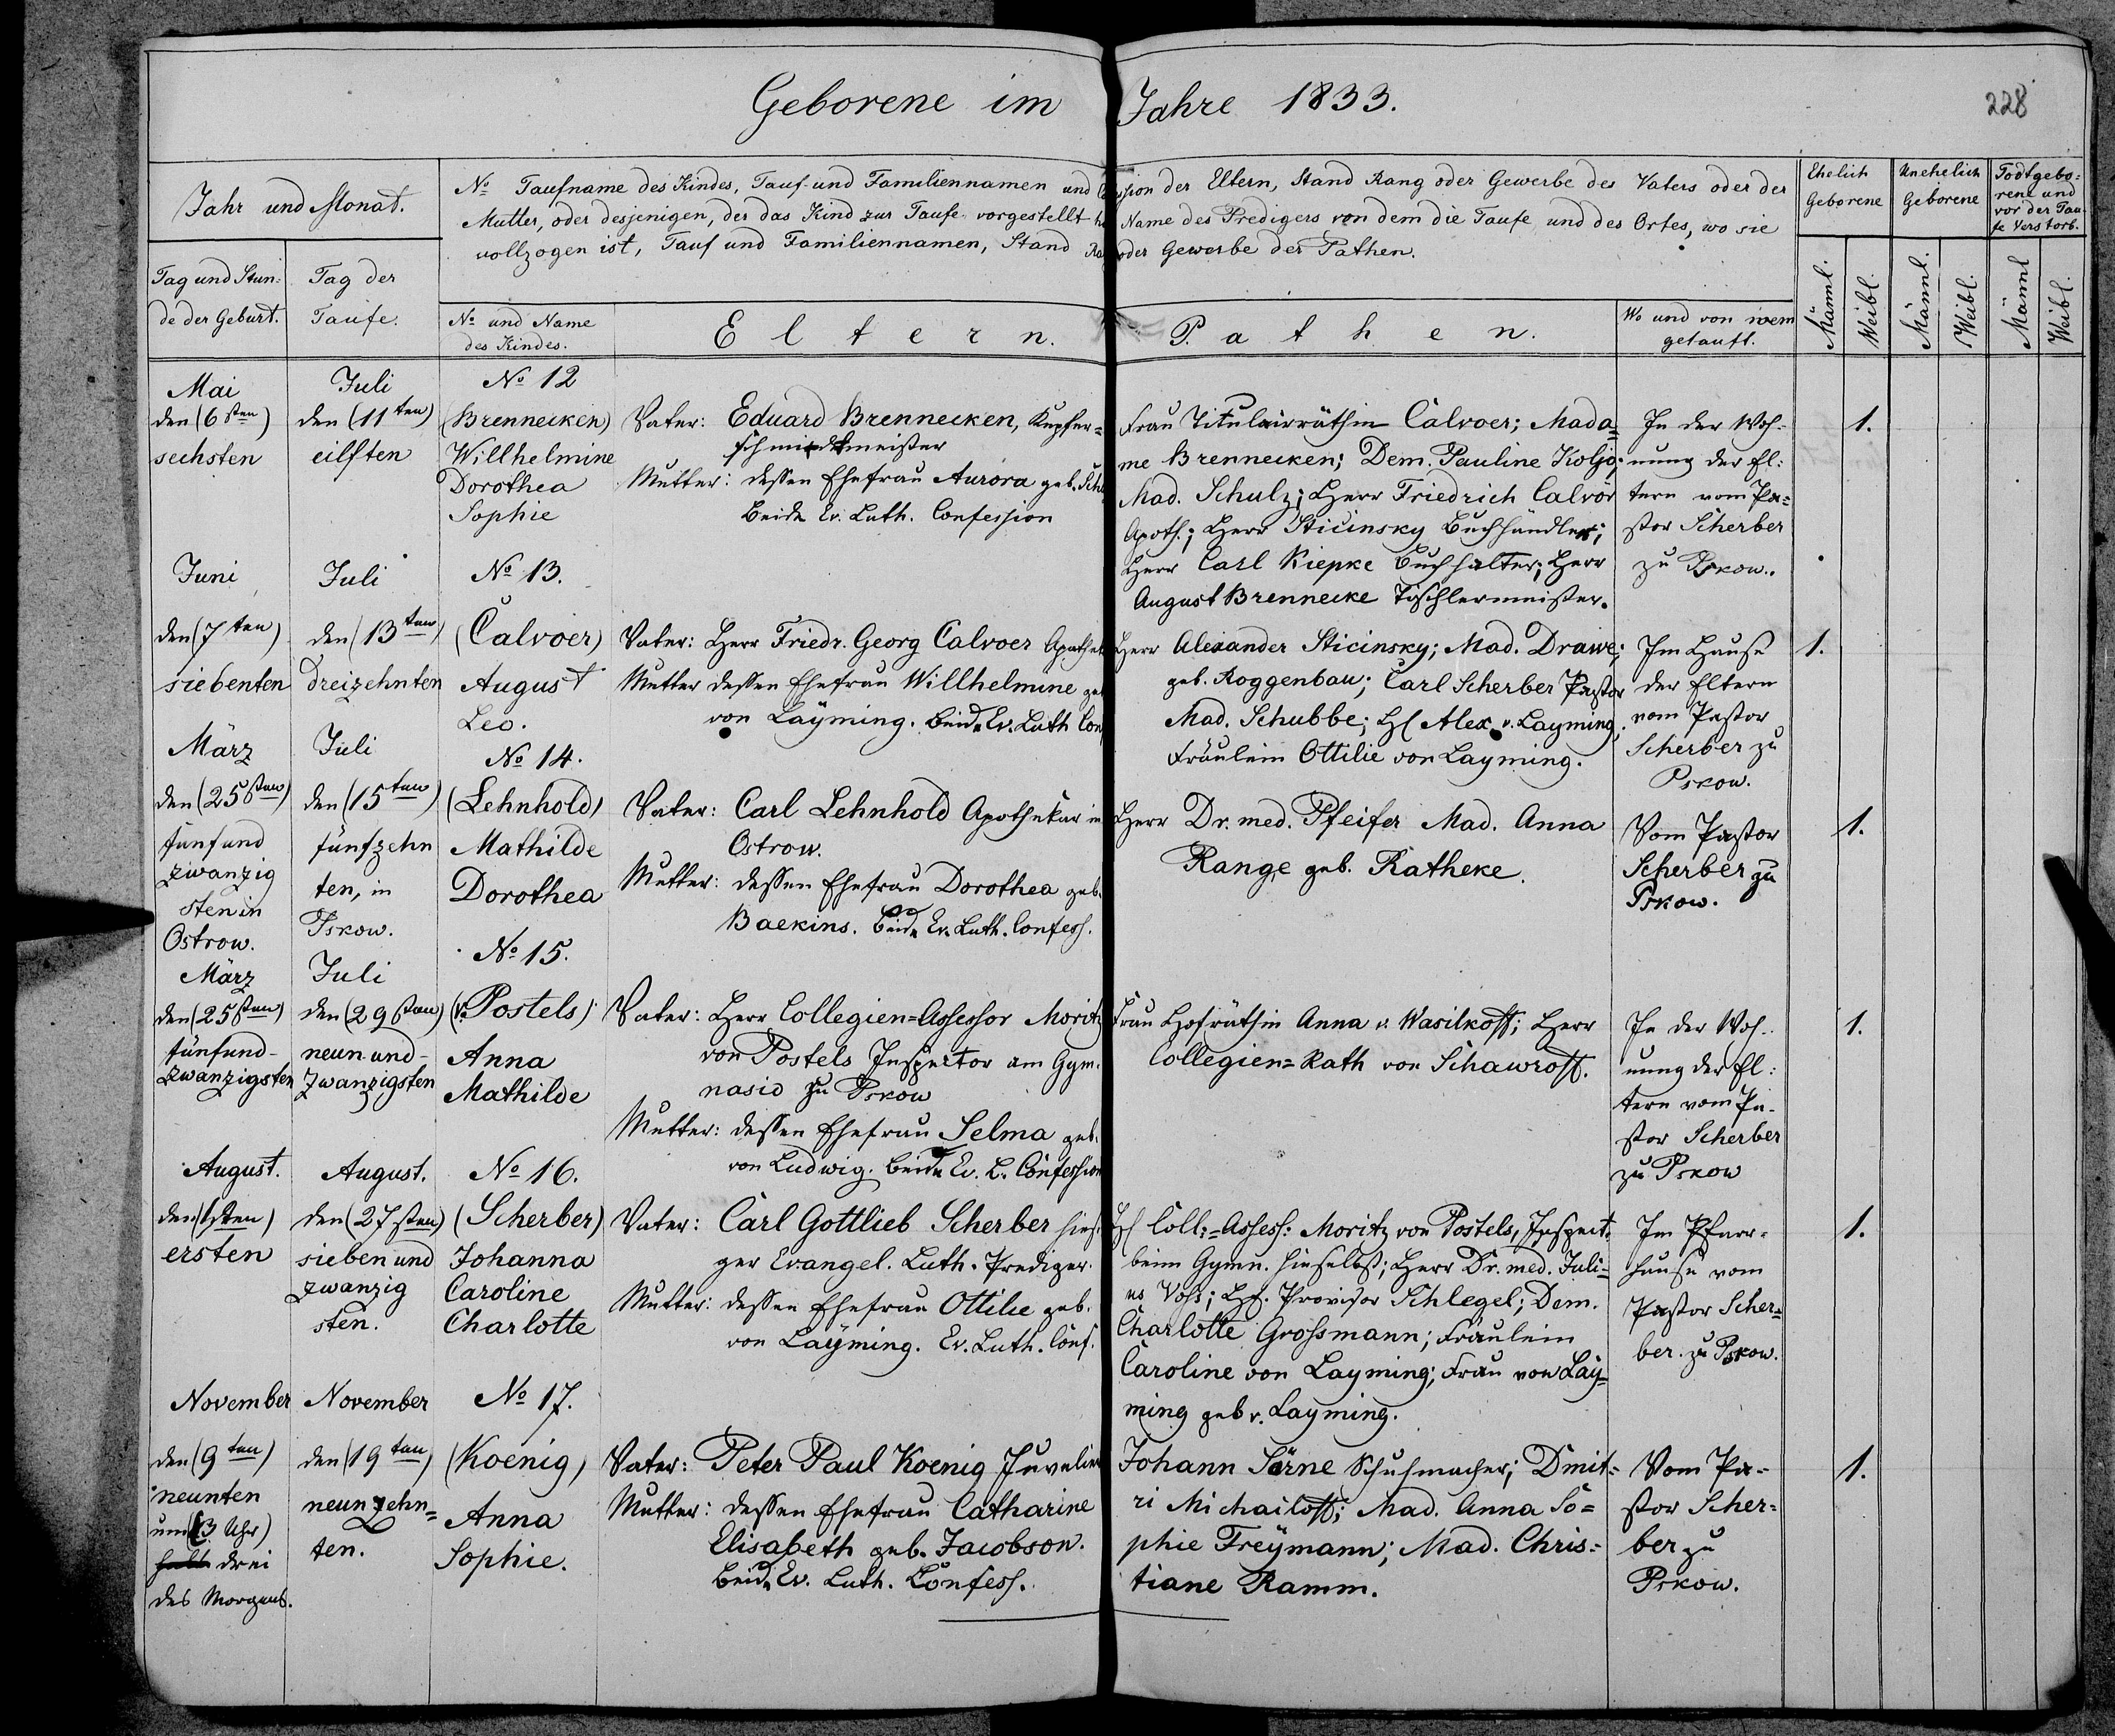 Geborene im Jahre 1833.
228
Jahr und Monat.
Tag und Stun-
de der Geburt.
Tag der
Taufe.
No Taufname des Kindes, Tauf- und Familiennamen und
ssion der Eltern, Stand Rang oder Gewerbe des Vaters oder der
Mutter, oder desjenigen, der das Kind zur Taufe vorgestellt
Name des Predigers von dem die Taufe und des Ortes, wo sie
vollzogen ist, Tauf und Familiennamen, Stand
oder Gewerbe der Pathen.
No und Name
des Kindes.
Eltern.
Pathen.
Wo und von wem
getauft.
Ehelich
Geborene
Unehelich
Geborene
Todtgebo-
rene und
vor der Tau-
fe Verstorb.
Männl.
Weibl.
Männl.
Weibl.
Männl
Weibl.
Mai
den (6sten)
sechsten
Juli
den (11ten)
eilften
No 12
(Brennecken)
Willhelmine
Dorothea
Sophie
Vater: Eduard Brennecken, Kupfer=
schmiedtmeister
Mutter: dessen Ehefrau Aurora geb.
Beide Ev. Luth. Confession
Frau Titulairräthin Calvoer; Mada=
me Brennecken; Dem. Pauline Koljo;
Mad. Schulz; Herr Friedrich Calvör
Apoth.; Herr Sticinsky Buchhändler;
Herr Carl Kiepke Buchhalter; Herr
August Brennecke Tischlermeister.
In der Woh-
nung der El-
tern vom Pa=
stor Scherber
zu Pskow.
1.
Juni
den (7ten)
siebenten
Juli
den (13ten)
dreizehnten
No 13.
(Calvoer)
August
Leo.
Vater: Herr Friedr. Georg Calvoer
Mutter dessen Ehefrau Willhelmine
von Laÿming. Beide Ev. Luth
Herr Alexander Sticinsky; Mad. Drawe;
geb. Roggenbau; Carl Scherber Pastor
Mad. Schubbe; H Alex v. Layming;
Fräulein Ottilie von Layming.
Im Hause
der Eltern
vom Pastor
Scherber zu
Pskow.
1.
März
den (25sten)
fünfund
zwanzig
sten in
Ostrow.
Juli
den (15ten)
fünfzehn
ten, in
Pskow.
No 14.
(Lehnhold)
Mathilde
Dorothea
Vater: Carl Lehnhold Apothekar in
Ostrow.
Mutter: dessen Ehefrau Dorothea geb.
Baekins. Beide Ev. Luth. Confess.
Herr Dr. med. Pfeifer Mad. Anna
Range geb. Ratheke.
Vom Pastor
Scherber zu
Pskow.
1.
März
den (25sten)
fünfund-
zwanzigsten
Juli
den (29sten)
neun und-
zwanzigsten
No 15.
(v. Postels)
Anna
Mathilde
Vater: Herr Collegien=Assessor Moritz
von Postels Inspector am Gym-
nasio zu Pskow
Mutter: dessen Ehefrau Selma geb.
von Ludwig. Beide Ev. L. Confession
Frau Hofräthin Anna v. Wasilkoff; Herr
Collegien=Rath von Schawroff.
In der Woh-
nung der El-
tern vom Pa-
stor Scherber
zu Pskow
1.
August.
den (1sten)
ersten
August.
den (27sten)
sieben und
zwanzig
sten.
No 16.
(Scherber)
Johanna
Caroline
Charlotte
Vater: Carl Gottlieb Scherber hiesi-
ger Evangel. Luth. Prediger.
Mutter: dessen Ehefrau Ottilie geb.
von Laÿming. Ev. Luth. Conf.
H Coll:=Assess: Moritz von Postels, Inspect.
beim Gymn. hieselbst; Herr Dr. med. Juli=
us Voss; H. Provisor Schlegel; Dem.
Charlotte Grossmann; Fräulein
Caroline von Layming; Frau von Lay=
ming geb v. Layming.
Im Pfarr-
hause vom
Pastor Scher=
ber. zu Pskow.
1.
November
den (9ten)
neunten
um (3 Uhr)
halb drei
des Morgens.
November
den (19ten)
neunzehn=
ten.
No 17.
(Koenig)
Anna
Sophie.
Vater: Peter Paul Koenig Juvelier
Mutter: dessen Ehefrau Catharine
Elisabeth geb. Jacobson.
Beide Ev. Luth. Confess.
Johann Särne Schuhmacher; Dmit=
ri Michailoff; Mad. Anna So=
phie Freÿmann; Mad. Chris=
tiane Ramm.
Vom Pa-
stor Scher=
ber zu
Pskow.
1.